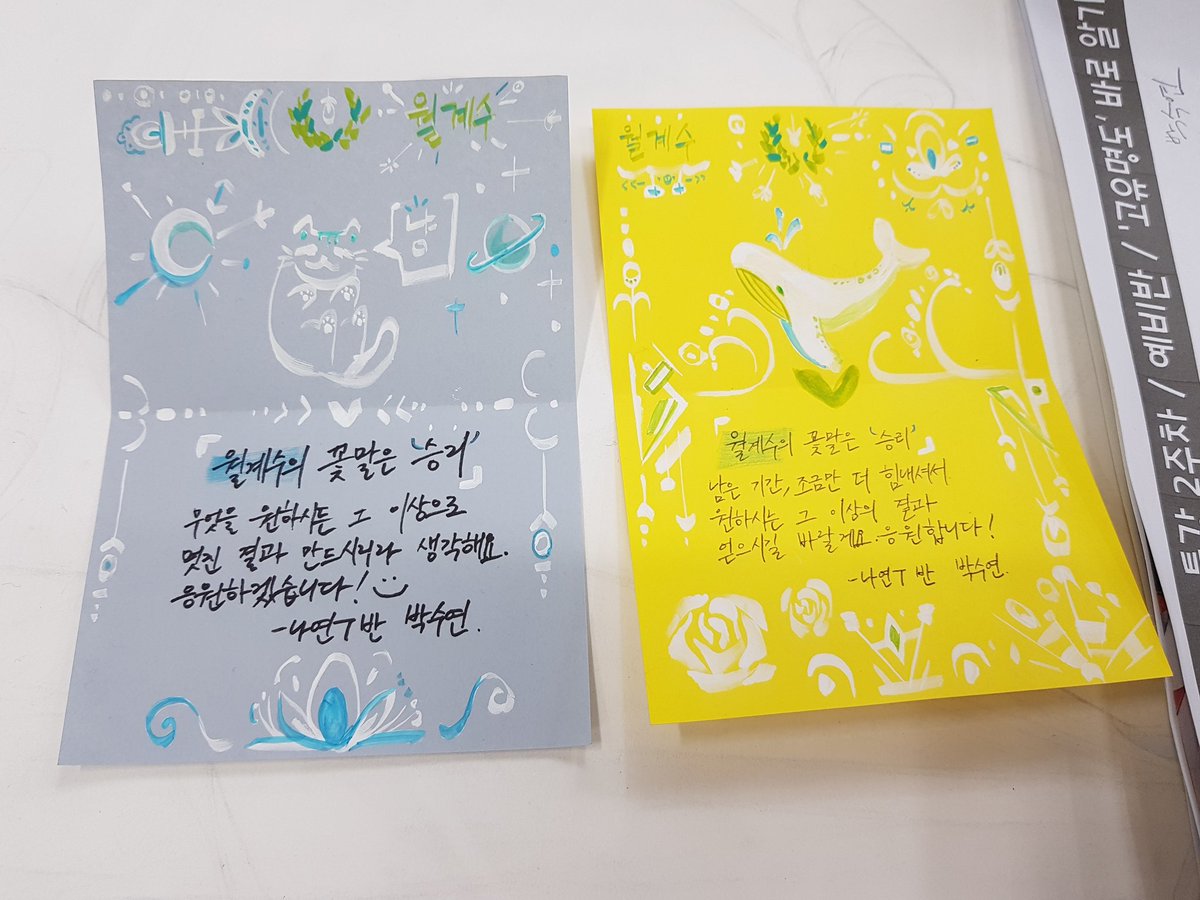 월계수
월계수의 꽃말은 '승리'
무엇을 원하시든 그 이상으로
멋진 결과 만드시리라 생각해요.
응원하겠습니다!
-나연T반 박수연.
월계수
월계수의 꽃말은 '승리'
남은 기간, 조금만 더 힘내셔서
원하시는 그 이상의 결과
얻으시길 바랄게요. 응원합니다!
-나연T반 박수연.
특가 2주차 / 예비반 /
바로 앞